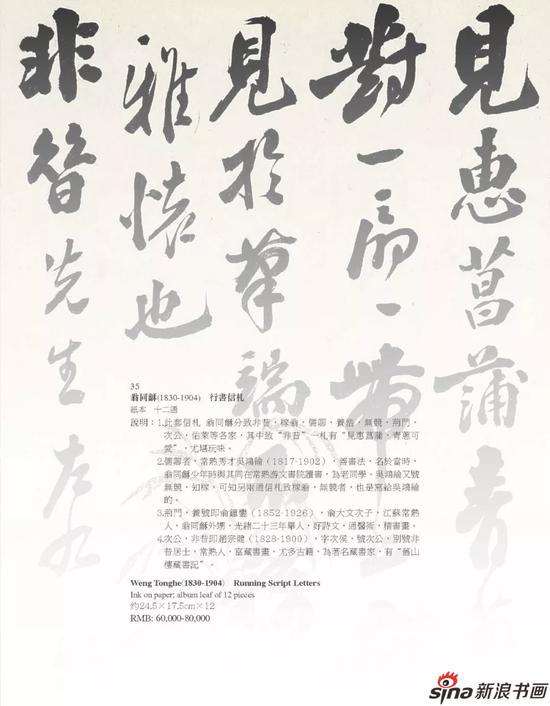 見惠菖蒲青
對一
見於筆端
雅懷也
非昔先生左右
35
翁同龢(1830-1904) 行書信札
紙本 十二通
說明：1.此套信札 翁同龢分致非昔，稼翁，儒卿，養浩，無競，荊門，
次公，佑萊等各家，其中致“非昔”一札有“見惠菖蒲，青蔥可
愛”，尤堪玩味。
2.儒卿者，常熟秀才吳鴻綸（1817-1902），善書法，名於當時，
翁同龢少年時與其同在常熟游文書院讀書，為老同學。吳鴻綸又號
無競，知稼，可知另兩通信札致稼翁，無競者，也是寫給吳鴻綸
的。
3.荊門，養號即俞鐘鑾（1852-1926），俞大文次子，江蘇常熟
人，翁同龢外甥，光緒二十三年舉人，好詩文，通醫術，精書畫。
4.次公，非昔即趙宗健（1828-1900），字次侯，號次公，別號非
昔居士，常熟人，富藏書畫，尤多古籍，為著名藏書家，有“舊山
樓藏書記”。
Weng Tonghe(1830-1904) Running Script Letters
Ink on paper; album leaf of 12 pieces
约24.5×17.5cm×12
RMB: 60,000-80,000
sina新浪书画